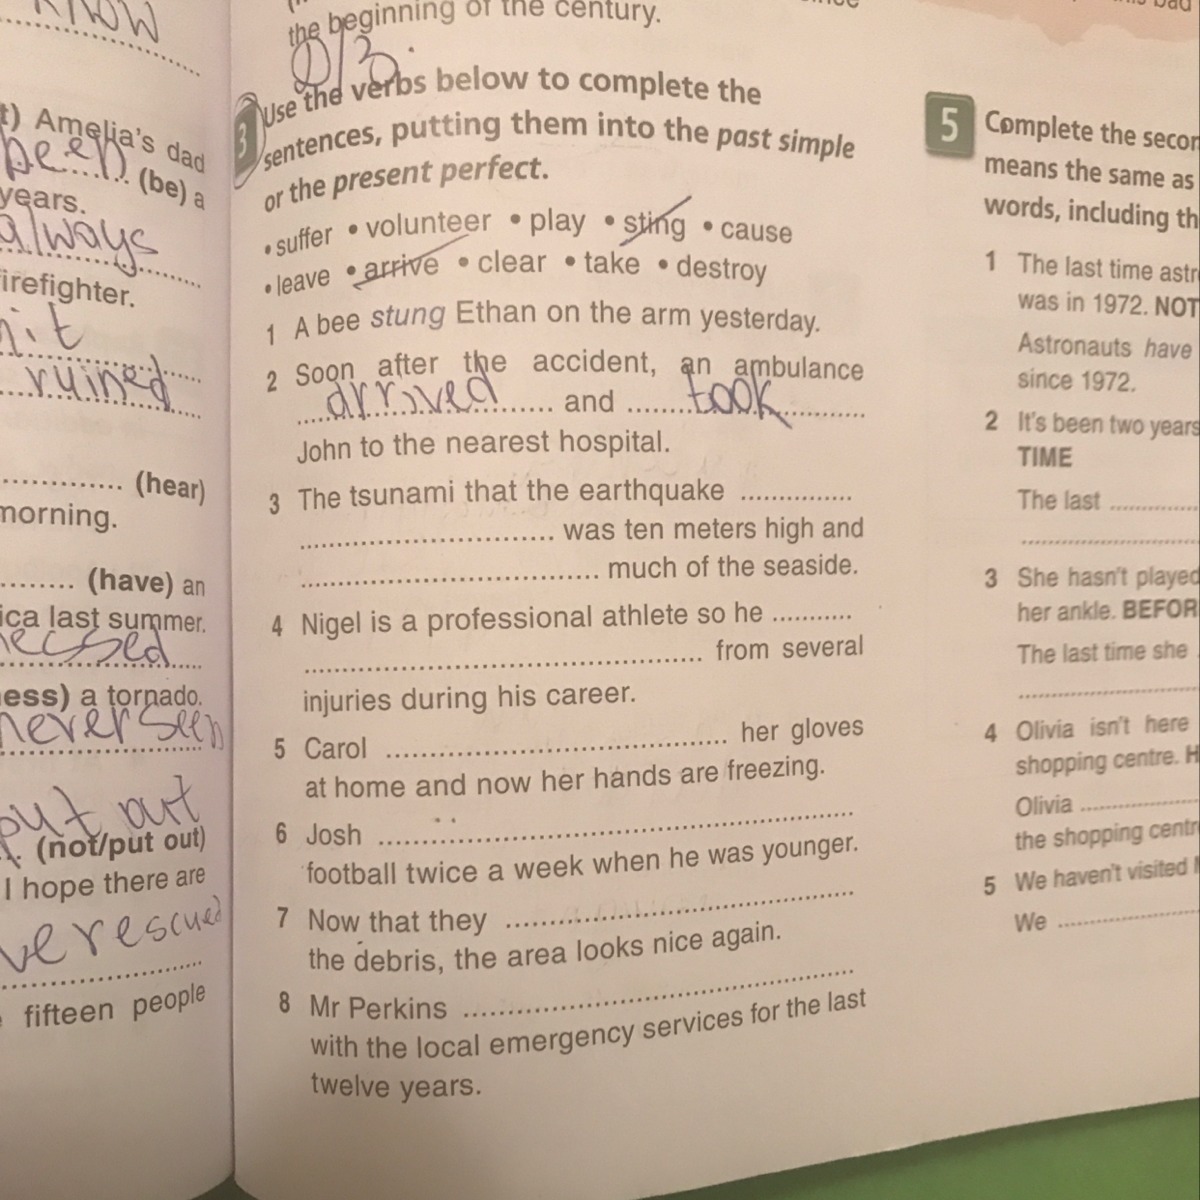 know
t) Amelia's dad
been (be) a
years.
always
irefighter.
hit
ruined
(hear)
morning.
(have) an
ica last summer.
ess) a tornado.
never seen
put out
(not/put out)
I hope there are
ve rescued
fifteen people
the beginning of the century.
3 Use the verbs below to complete the
sentences, putting them into the past simple
or the present perfect.
• suffer • volunteer • play • sting • cause
• leave • arrive • clear • take • destroy
1 A bee stung Ethan on the arm yesterday.
2 Soon after the accident, an ambulance
arrived and took
John to the nearest hospital.
3 The tsunami that the earthquake ...............
.............................. was ten meters high and
................................... much of the seaside.
4 Nigel is a professional athlete so he ...........
................................................ from several
injuries during his career.
5 Carol ......................................... her gloves
at home and now her hands are freezing.
6 Josh .........................................................
football twice a week when he was younger.
7 Now that they ..........................................
the debris, the area looks nice again.
8 Mr Perkins ...............................................
with the local emergency services for the last
twelve years.
5 Complete the secon
means the same as
words, including th
1 The last time astr
was in 1972. NOT
Astronauts have
since 1972.
2 It's been two years
TIME
The last ............
3 She hasn't played
her ankle. BEFOR
The last time she
4 Olivia isn't here
shopping centre. H
Olivia ................
the shopping centr
5 We haven't visited
We ....................